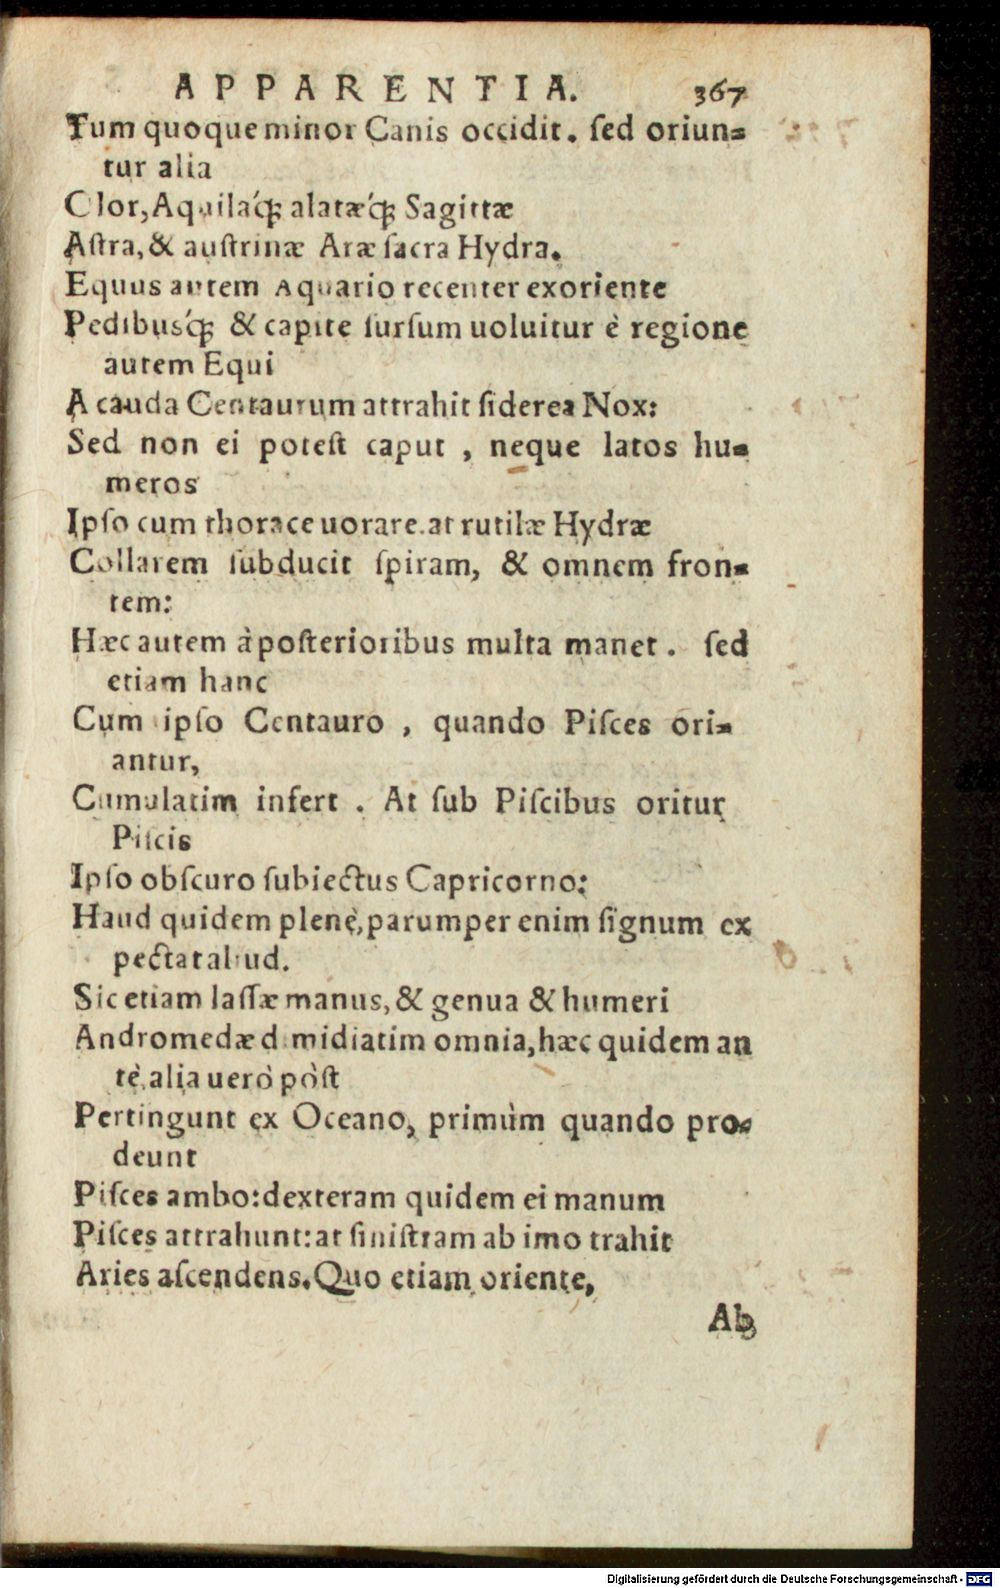 APPARENTIA. 367
Tum quoque minor Canis occidit. sed oriun-
tur alia
Olor, Aquilaq́; alatæq́; Sagittæ
Astra, & austrinæ Aræ sacra Hydra.
Equus autem Aquario recenter exoriente
Pedibusq́; & capite sursum uoluitur è regione
autem Equi
A cauda Centaurum attrahit siderea Nox:
Sed non ei potest caput , neque latos hu-
meros
Ipso cum thorace uorare. at rutilæ Hydræ
Collarem subducit spiram, & omnem fron-
tem:
Hæc autem à posterioribus multa manet . sed
etiam hanc
Cum ipso Centauro , quando Pisces ori-
antur,
Cumulatim infert . At sub Piscibus oritur
Piscis
Ipso obscuro subiectus Capricorno:
Haud quidem plenè, parumper enim signum ex
pectat aliud.
Sic etiam lassæ manus, & genua & humeri
Andromedæ dimidiatim omnia, hæc quidem an
tè, alia uerò pòst
Pertingunt ex Oceano, primùm quando pro-
deunt
Pisces ambo: dexteram quidem ei manum
Pisces attrahunt: at sinistram ab imo trahit
Aries ascendens. Quo etiam oriente,
Ab
Digitalisierung gefördert durch die Deutsche Forschungsgemeinschaft - DFG